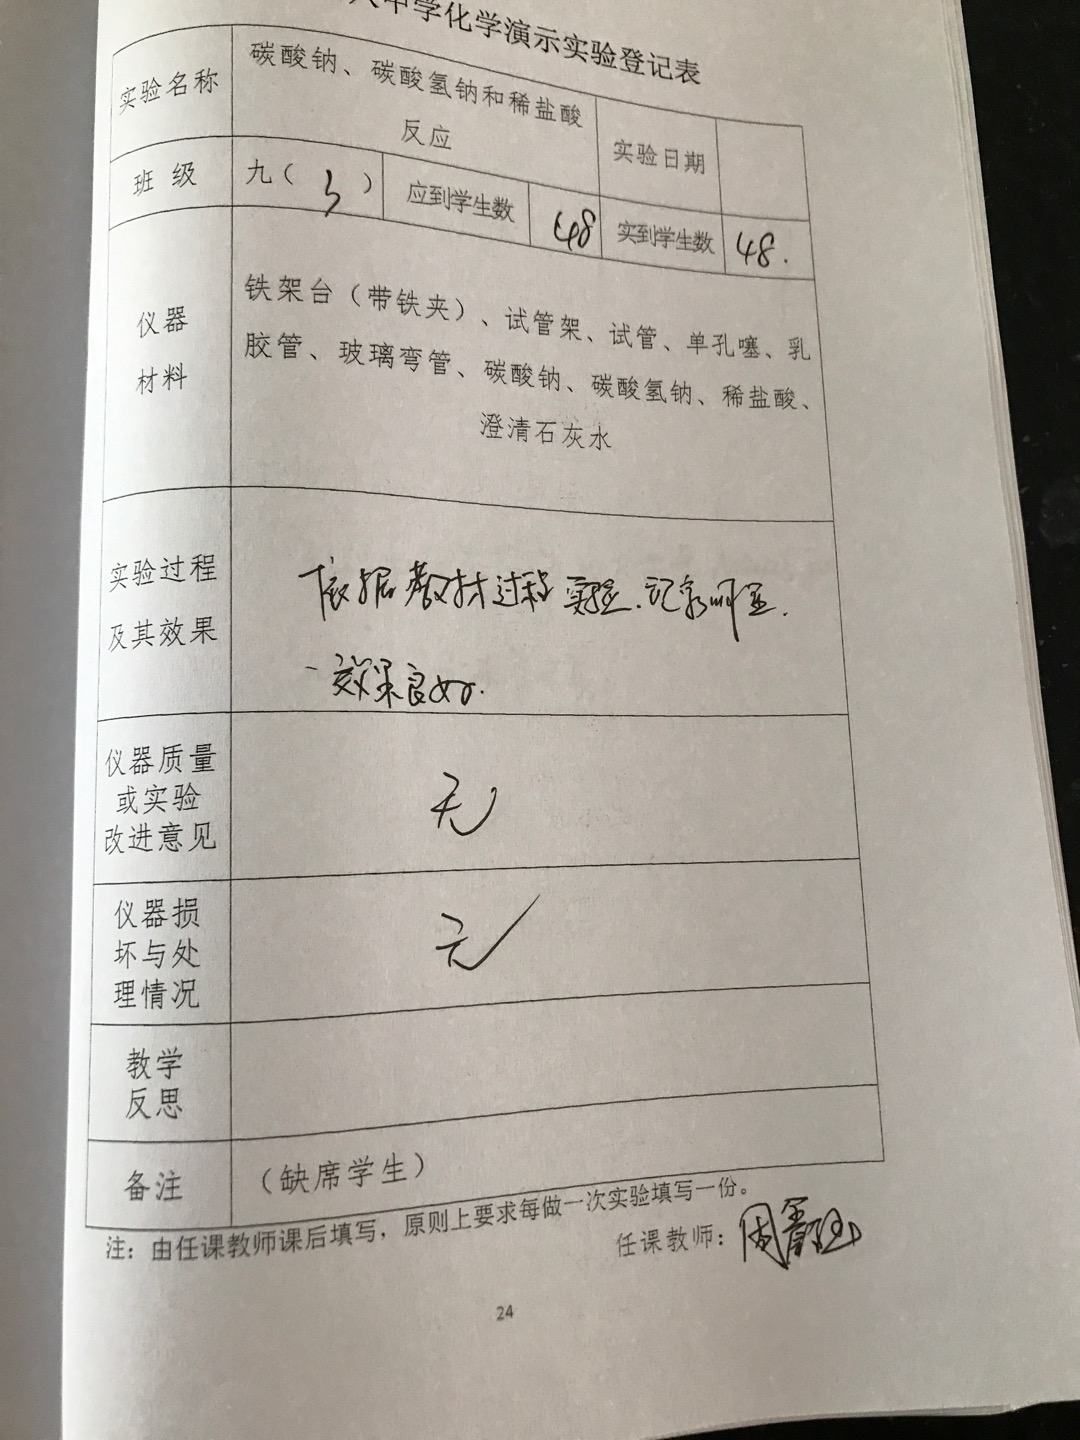 中学化学演示实验登记表
实验名称
碳酸钠、碳酸氢钠和稀盐酸
反应
实验日期
班 级
九( 3 )
应到学生数
48
实到学生数
48.
仪器
材料
铁架台（带铁夹）、试管架、试管、单孔噻、乳
胶管、玻璃弯管、碳酸钠、碳酸氢钠、稀盐酸、
澄清石灰水
实验过程
及其效果
依据教材过程实验.记录
效果良好.
仪器质量
或实验
改进意见
无
仪器损
坏与处
理情况
无
教学
反思
备注
（缺席学生）
注：由任课教师课后填写，原则上要求每做一次实验填写一份。
任课教师：周
24